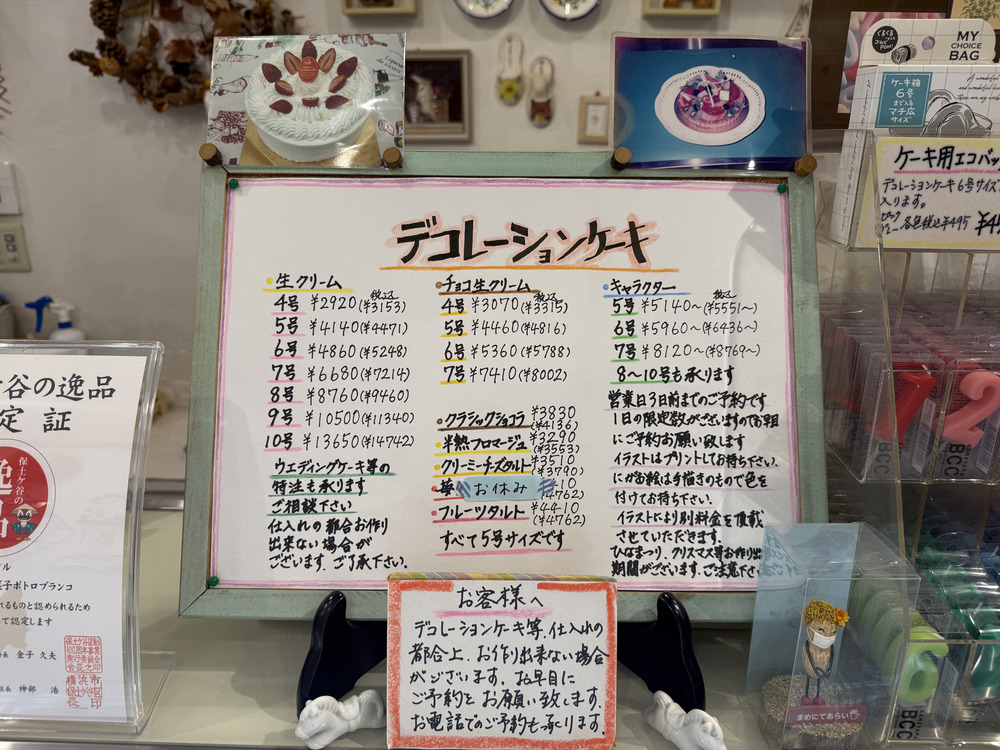 デコレーションケーキ
・生クリーム
税込
4号 ¥2920(¥3153)
5号 ¥4140(¥4471)
6号 ¥4860(¥5248)
7号 ¥6680(¥7214)
8号 ¥8760(¥9460)
9号 ¥10500(¥11340)
10号 ¥13650(¥14742)
ウエディングケーキ等の
特注も承ります
ご相談下さい
仕入れの都合お作り
出来ない場合が
ございます。ご了承下さい。
・チョコ生クリーム
税込
4号 ¥3070(¥3315)
5号 ¥4460(¥4816)
6号 ¥5360(¥5788)
7号 ¥7410(¥8002)
・クラシックショコラ ¥3830
(¥4136)
・半熟フロマージュ ¥3290
(¥3553)
・クリーミーチーズタルト ¥3510
(¥3790)
お休み
・フルーツタルト ¥4410
(¥4762)
すべて5号サイズです
・キャラクター
税込
5号 ¥5140〜(¥5551〜)
6号 ¥5960〜(¥6436〜)
7号 ¥8120〜(¥8769〜)
8〜10号も承ります
営業日3日前までのご予約です
1日の限定数がございますのでお早目
にご予約お願い致します
イラストはプリントしてお持ち下さい。
にがお絵は手描きのもので色を
付けてお持ち下さい。
イラストにより別料金を頂戴
させていただきます。
ひなまつり、クリスマス等お作り出
期間がございます。ご注意下さ
お客様へ
デコレーションケーキ等、仕入れの
都合上、お作り出来ない場合
がございます。お早目に
ご予約をお願い致します。
お電話でのご予約も承ります。
ケ谷の逸品
定 証
保土ケ谷の
逸品
菓子ポトロブランコ
れるものと認められるため
て認定します
金子 久夫
神部 浩
MY
CHOICE
BAG
ケーキ箱
6号
まで入る
マチ広
サイズ
ケーキ用エコバッ
デコレーションケーキ6号サイズ
入ります。
各色税込¥495
まめにてあらい
BCC
BCC